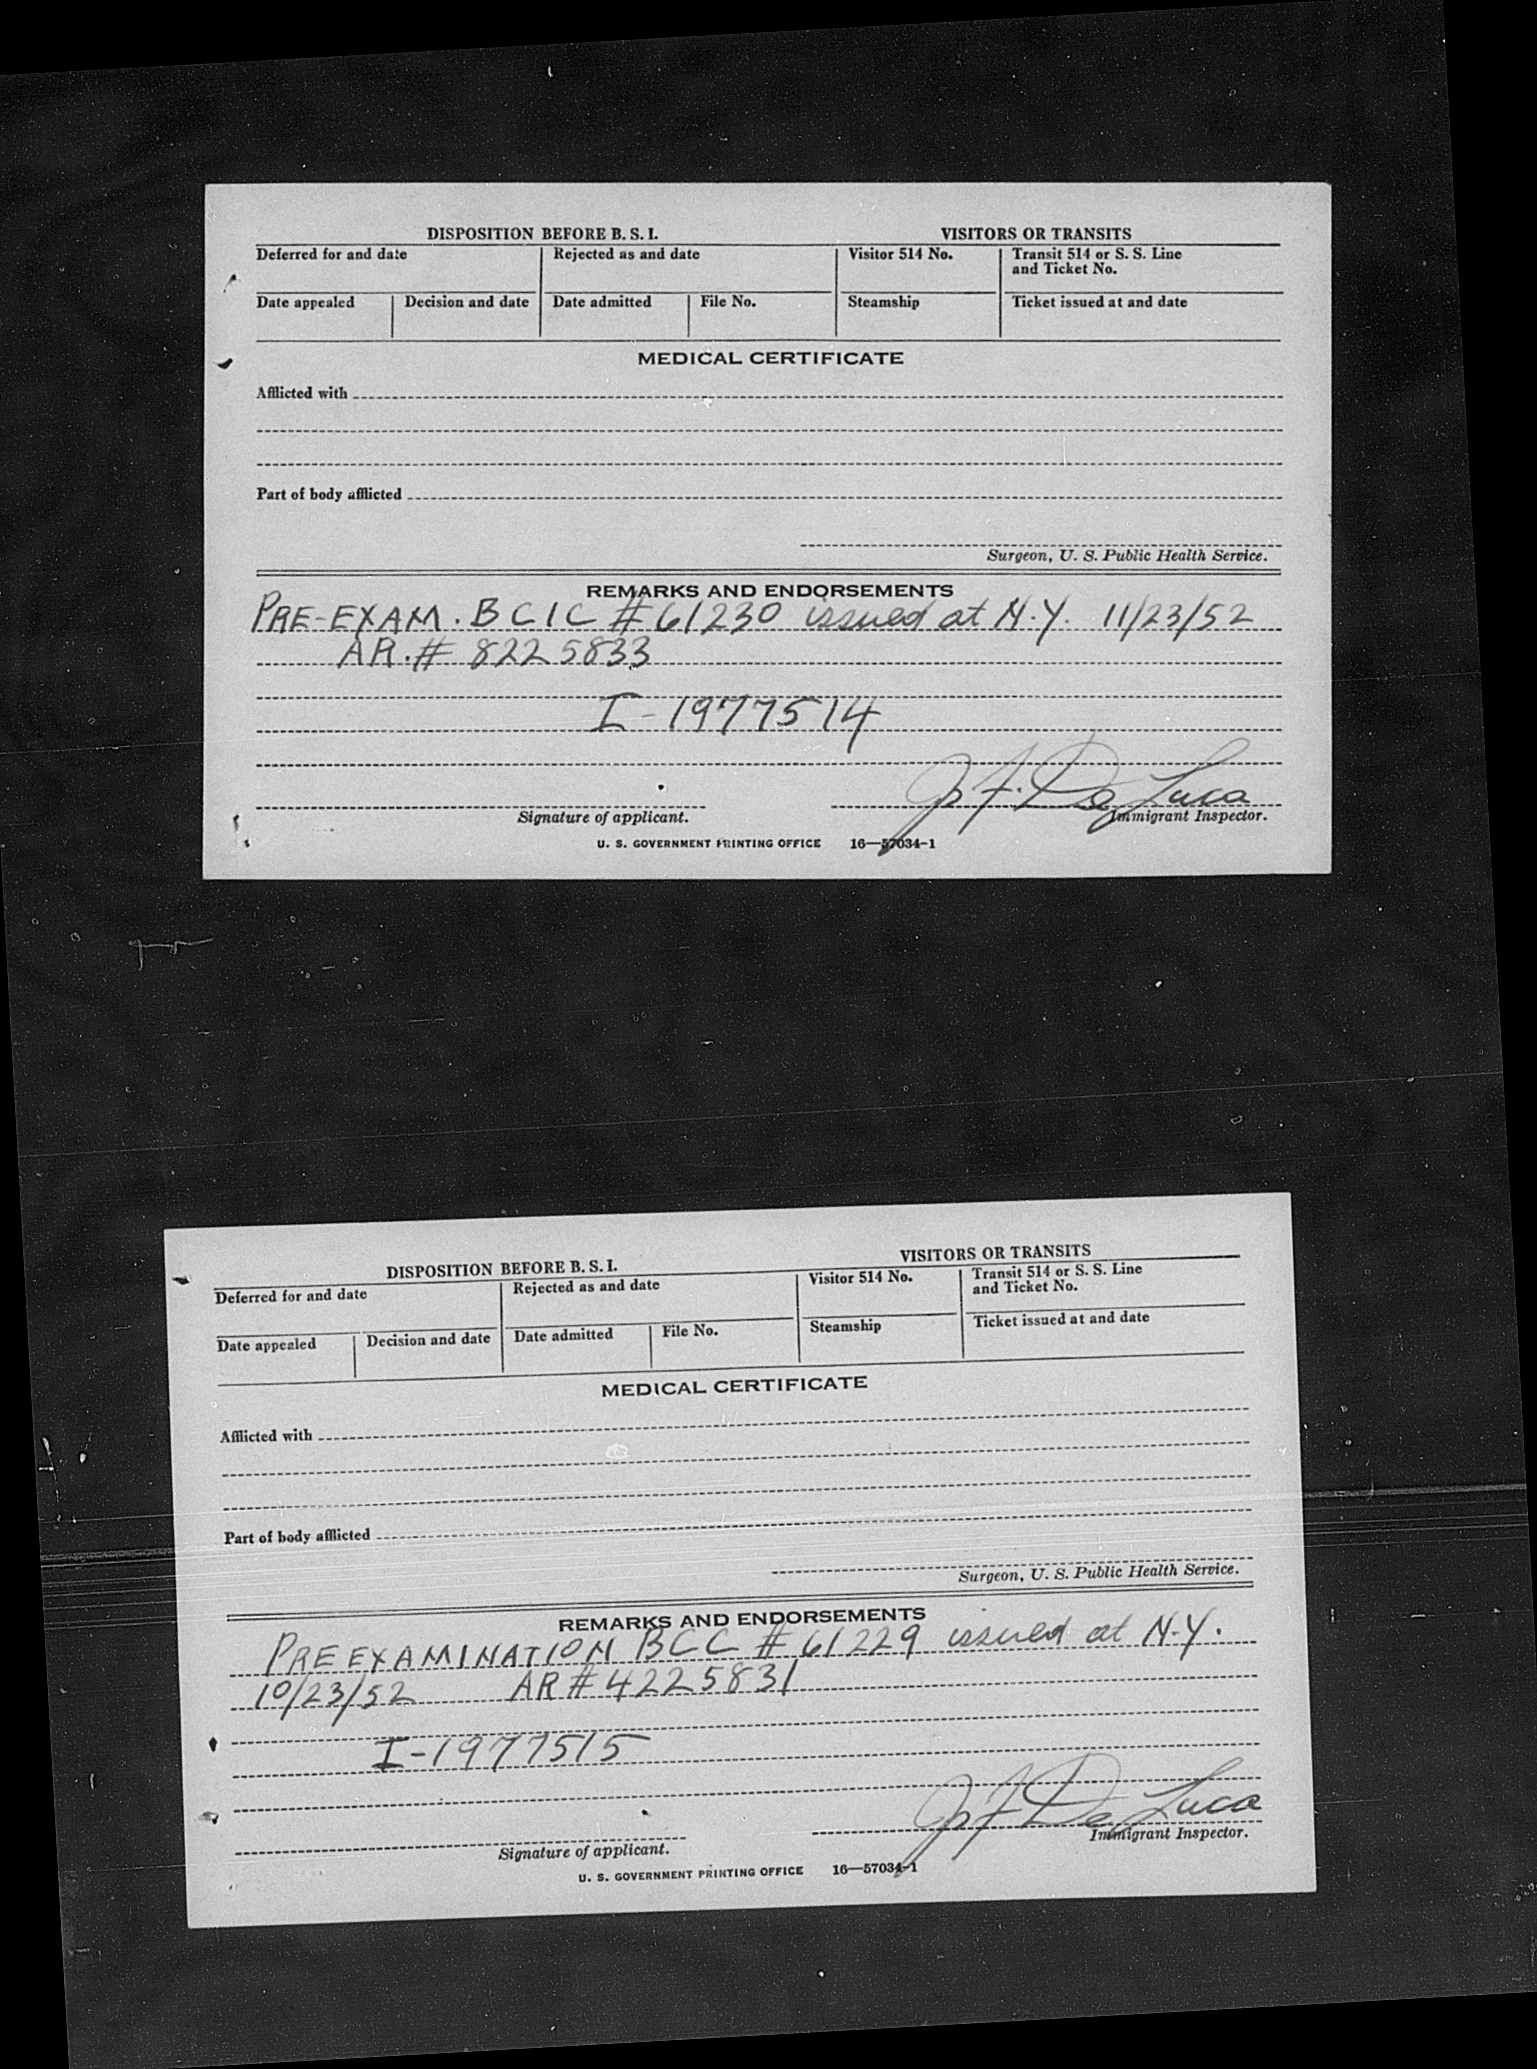 DISPOSITION BEFORE B. S. I. VISITORS OR TRANSITS
Deferred for and date Rejected as and date Visitor 514 No. Transit 514 or S. S. Line
and Ticket No.
Date appealed Decision and date Date admitted File No. Steamship Ticket issued at and date
MEDICAL CERTIFICATE
Afflicted with
Part of body afflicted
Surgeon, U. S. Public Health Service.
REMARKS AND ENDORSEMENTS
PRE-EXAM. BCIC # 61230 issued at N.Y. 11/23/52
AR.# 8225833
I-1977514
J F. De Luca
Signature of applicant. Immigrant Inspector.
U. S. GOVERNMENT PRINTING OFFICE 16—57034-1
DISPOSITION BEFORE B. S. I. VISITORS OR TRANSITS
Deferred for and date Rejected as and date Visitor 514 No. Transit 514 or S. S. Line
and Ticket No.
Date appealed Decision and date Date admitted File No. Steamship Ticket issued at and date
MEDICAL CERTIFICATE
Afflicted with
Part of body afflicted
Surgeon, U. S. Public Health Service.
REMARKS AND ENDORSEMENTS
PREEXAMINATION BCC # 61229 issued at N.Y.
10/23/52 AR # 4225831
I-1977515
J F De Luca
Signature of applicant. Immigrant Inspector.
U. S. GOVERNMENT PRINTING OFFICE 16—57034-1